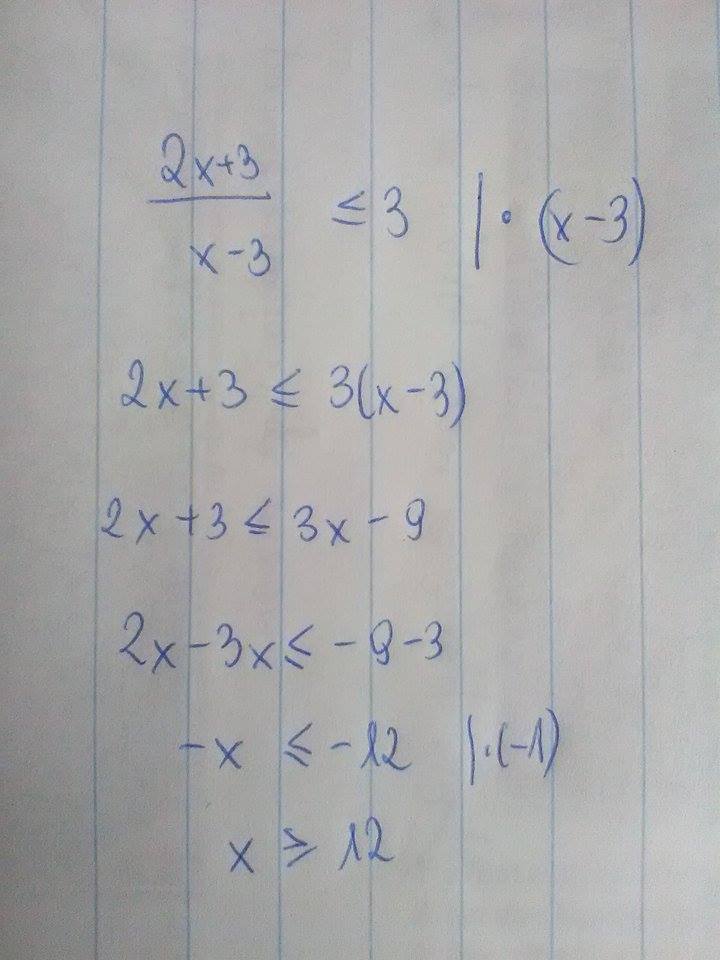 2x+3
x-3
≤ 3 | · (x-3)
2x+3 ≤ 3(x-3)
2x+3 ≤ 3x-9
2x-3x ≤ -9-3
-x ≤ -12 | · (-1)
x ≥ 12